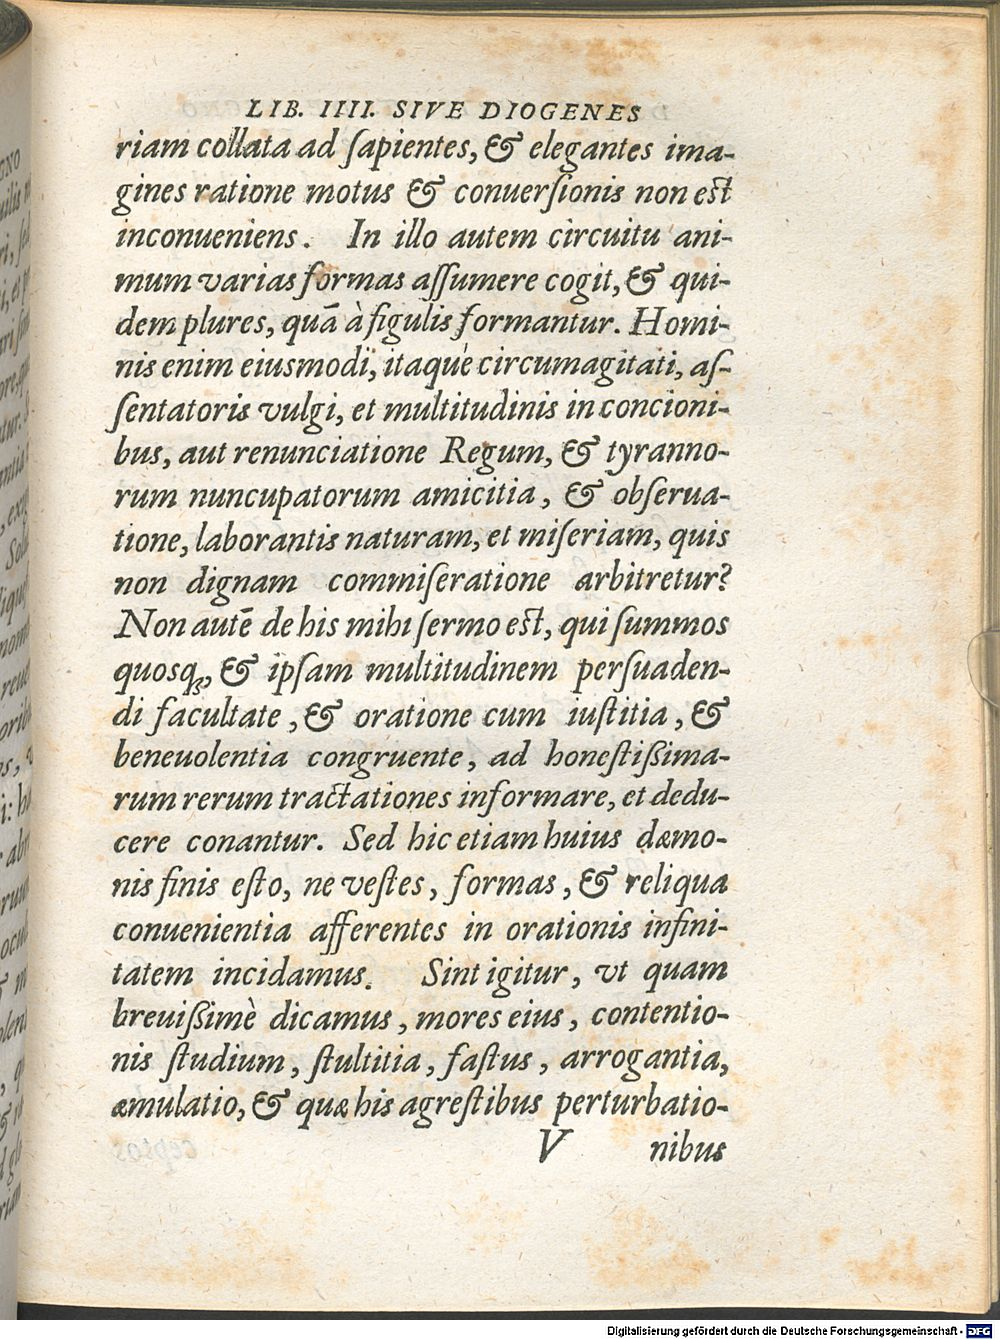 LIB. IIII. SIVE DIOGENES
riam collata ad ſapientes, & elegantes ima-
gines ratione motus & conuerſionis non eſt
inconueniens. In illo autem circuitu ani-
mum varias formas aſſumere cogit, & qui-
dem plures, quā à figulis formantur. Homi-
nis enim eiusmodi, itaque circumagitati, aſ-
ſentatoris vulgi, et multitudinis in concioni-
bus, aut renunciatione Regum, & tyranno-
rum nuncupatorum amicitia, & obſerua-
tione, laborantis naturam, et miſeriam, quis
non dignam commiſeratione arbitretur?
Non autē de his mihi ſermo eſt, qui ſummos
quosq;, & ipſam multitudinem perſuaden-
di facultate, & oratione cum iuſtitia, &
beneuolentia congruente, ad honeſtiſſima-
rum rerum tractationes informare, et dedu-
cere conantur. Sed hic etiam huius dæmo-
nis finis eſto, ne veſtes, formas, & reliqua
conuenientia afferentes in orationis infini-
tatem incidamus. Sint igitur, vt quam
breuißimè dicamus, mores eius, contentio-
nis ſtudium, ſtultitia, faſtus, arrogantia,
æmulatio, & quæ his agreſtibus perturbatio-
V nibus
Digitalisierung gefördert durch die Deutsche Forschungsgemeinschaft - DFG